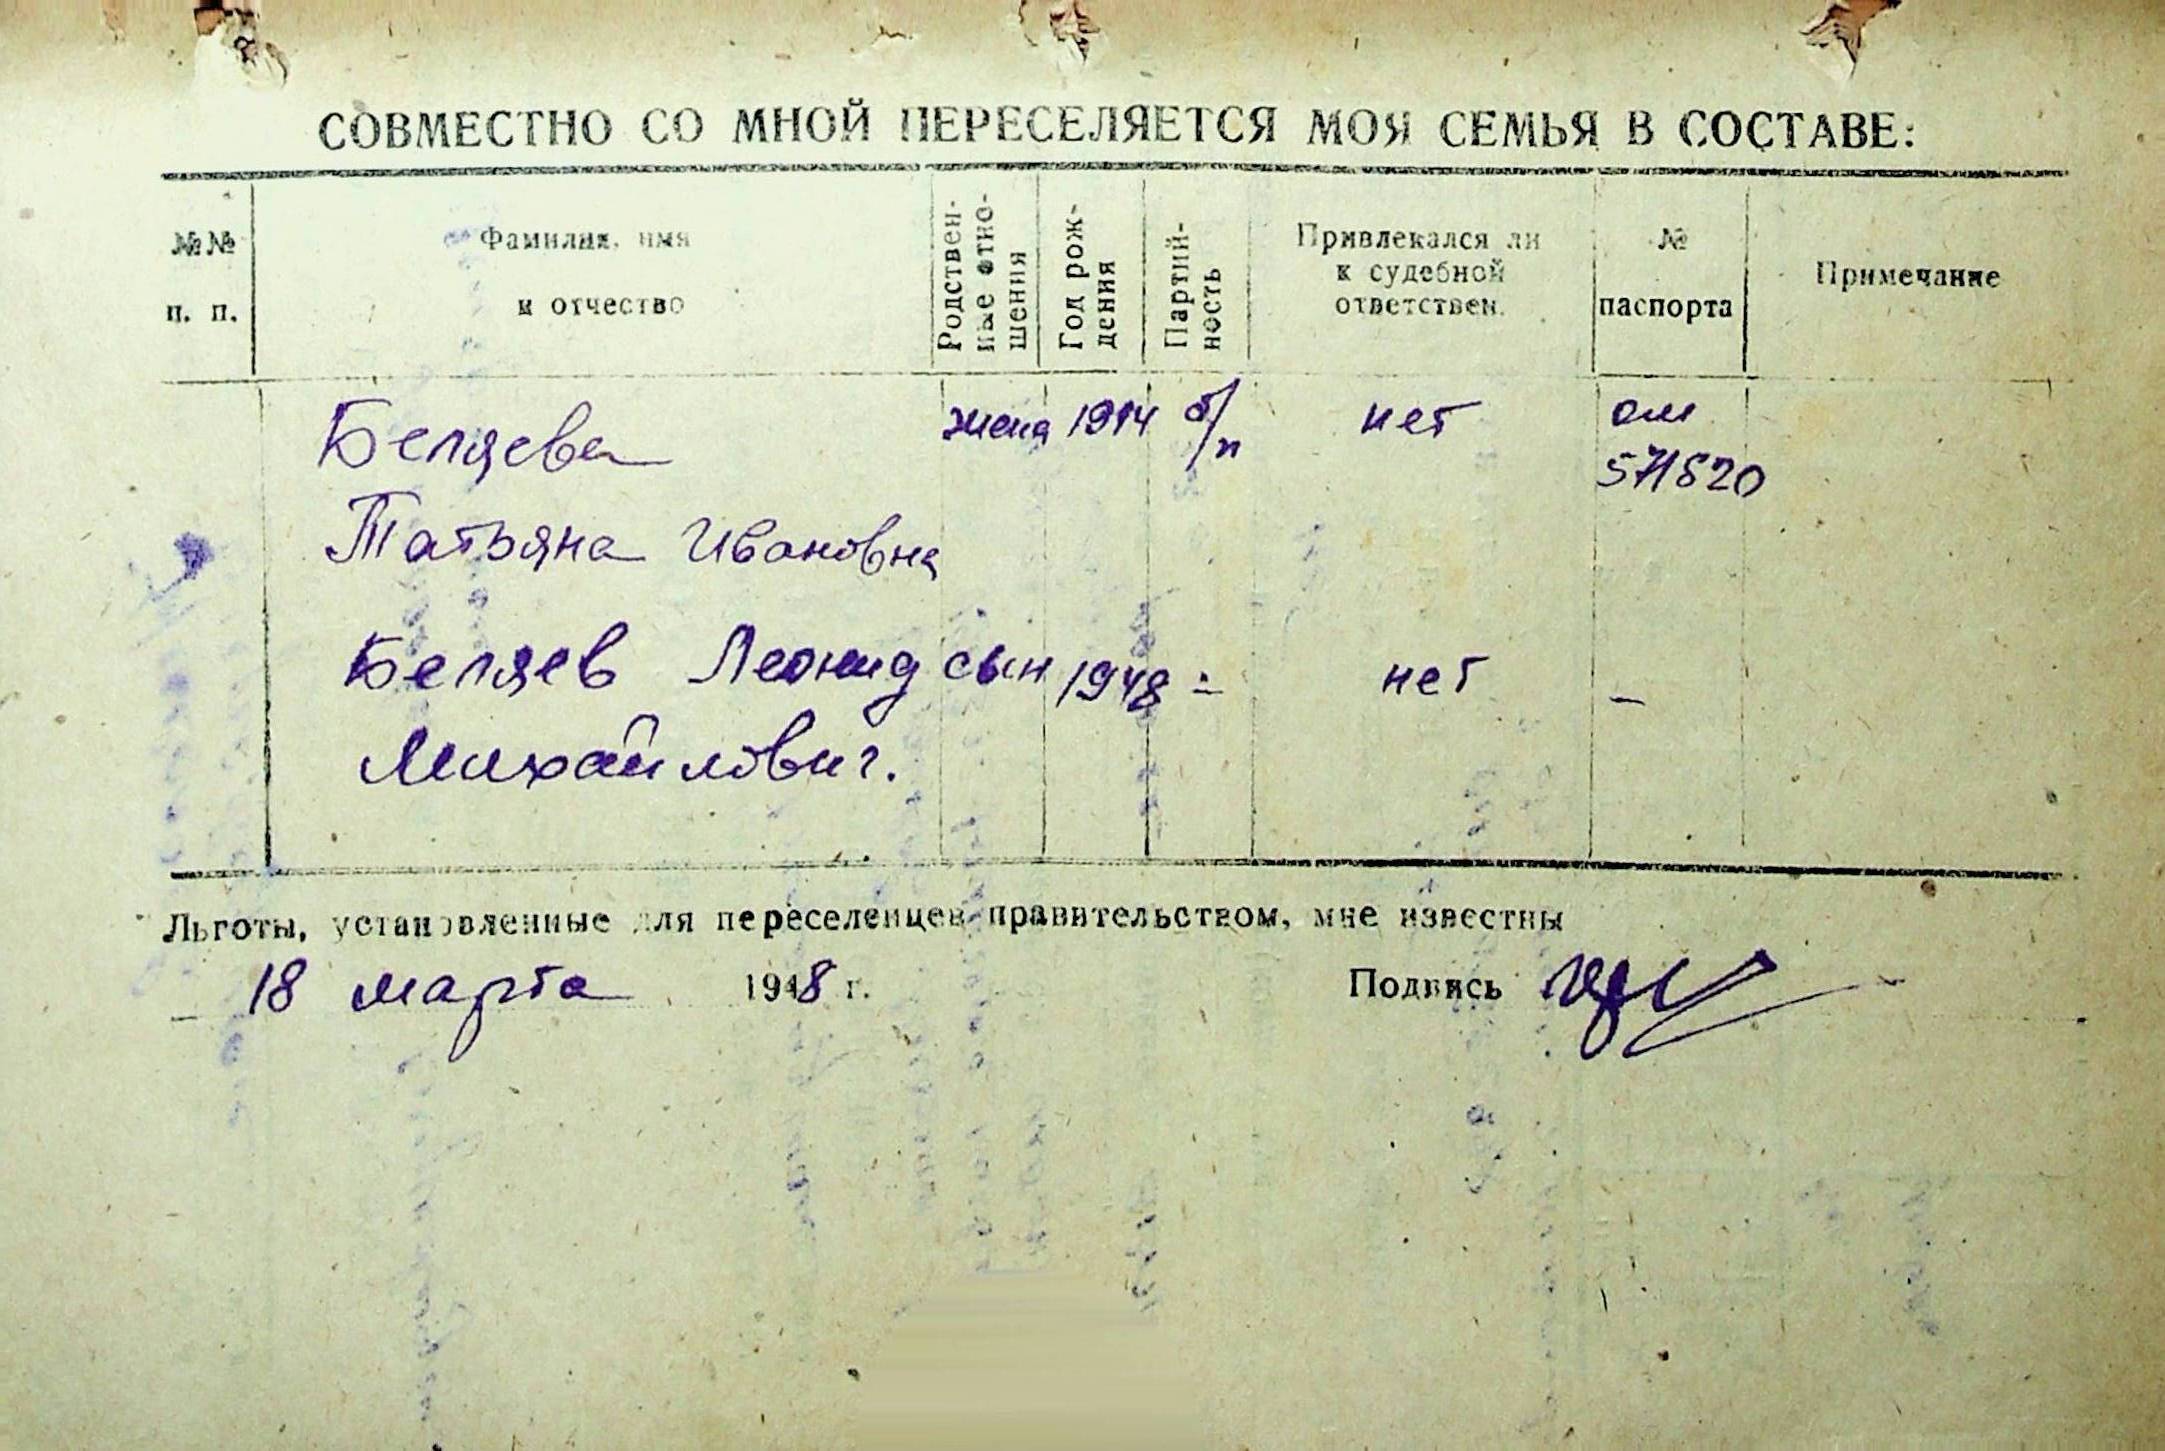 СОВМЕСТНО СО МНОЙ ПЕРЕСЕЛЯЕТСЯ МОЯ СЕМЬЯ В СОСТАВЕ:
№№ п. п.
Фамилия, имя и отчество
Родствен-
ные отно-
шения
Год рож-
дения
Партий-
ность
Привлекался ли
к судебной
ответствен.
№
паспорта
Примечание
Беляева жена 1914 б/п нет ом
571520
Татьяна Ивановна
Беляев Леонид сын 1948 - нет -
Михайлович.
Льготы, установленные для переселенцев правительством, мне известны
18 марта 1948 г. Подпись